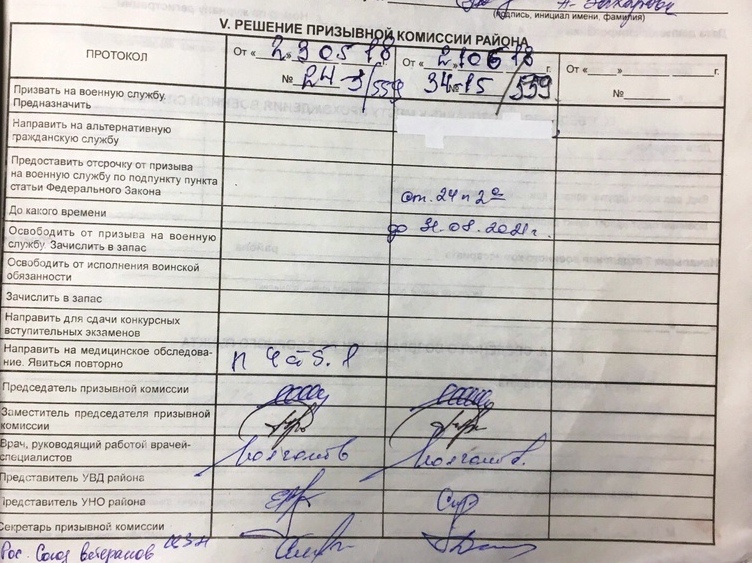 (подпись, инициал имени, фамилия)
V. РЕШЕНИЕ ПРИЗЫВНОЙ КОМИССИИ РАЙОНА
ПРОТОКОЛ
От « 23 05 18
№ 24-3/559
От « 21» 06 18 г.
№ 34-15/559
От «____»________ ____г.
№______
Призвать на военную службу.
Предназначить
Направить на альтернативную
гражданскую службу
Предоставить отсрочку от призыва
на военную службу по подпункту пункта
статьи Федерального Закона
ст. 24 п 2а
До какого времени
до 31.08.2021 г.
Освободить от призыва на военную
службу. Зачислить в запас
Освободить от исполнения воинской
обязанности
Зачислить в запас
Направить для сдачи конкурсных
вступительных экзаменов
Направить на медицинское обследова-
ние. Явиться повторно
Председатель призывной комиссии
Заместитель председателя призывной
комиссии
Врач, руководящий работой врачей-
специалистов
Представитель УВД района
Представитель УНО района
Секретарь призывной комиссии
Рос. Союз ветеранов